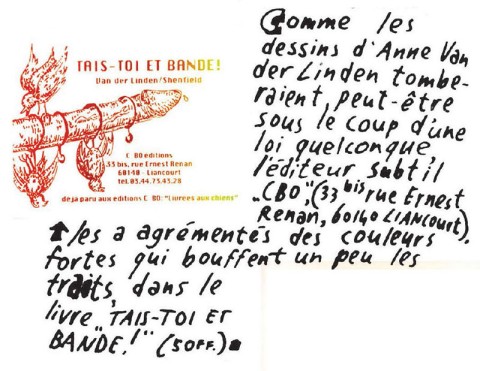 TAIS-TOI ET BANDE!
Van der Linden/Shenfield
C BO editions
33 bis, rue Ernest Renan
60140 - Liancourt
tel.03.44.73.43.28
deja paru aux editions C BO: "Livrees aux chiens"
Comme les
dessins d'Anne Van
der Linden tombe-
raient, peut-être
sous le coup d'une
loi quelconque,
l'éditeur subtil
"CBO", (33 bis rue Ernest
Renan, 60140 LIANCOURT).
les a agrémentés des couleurs
fortes qui bouffent un peu les
traits, dans le
livre "TAIS-TOI ET
BANDE!" (50FF.)